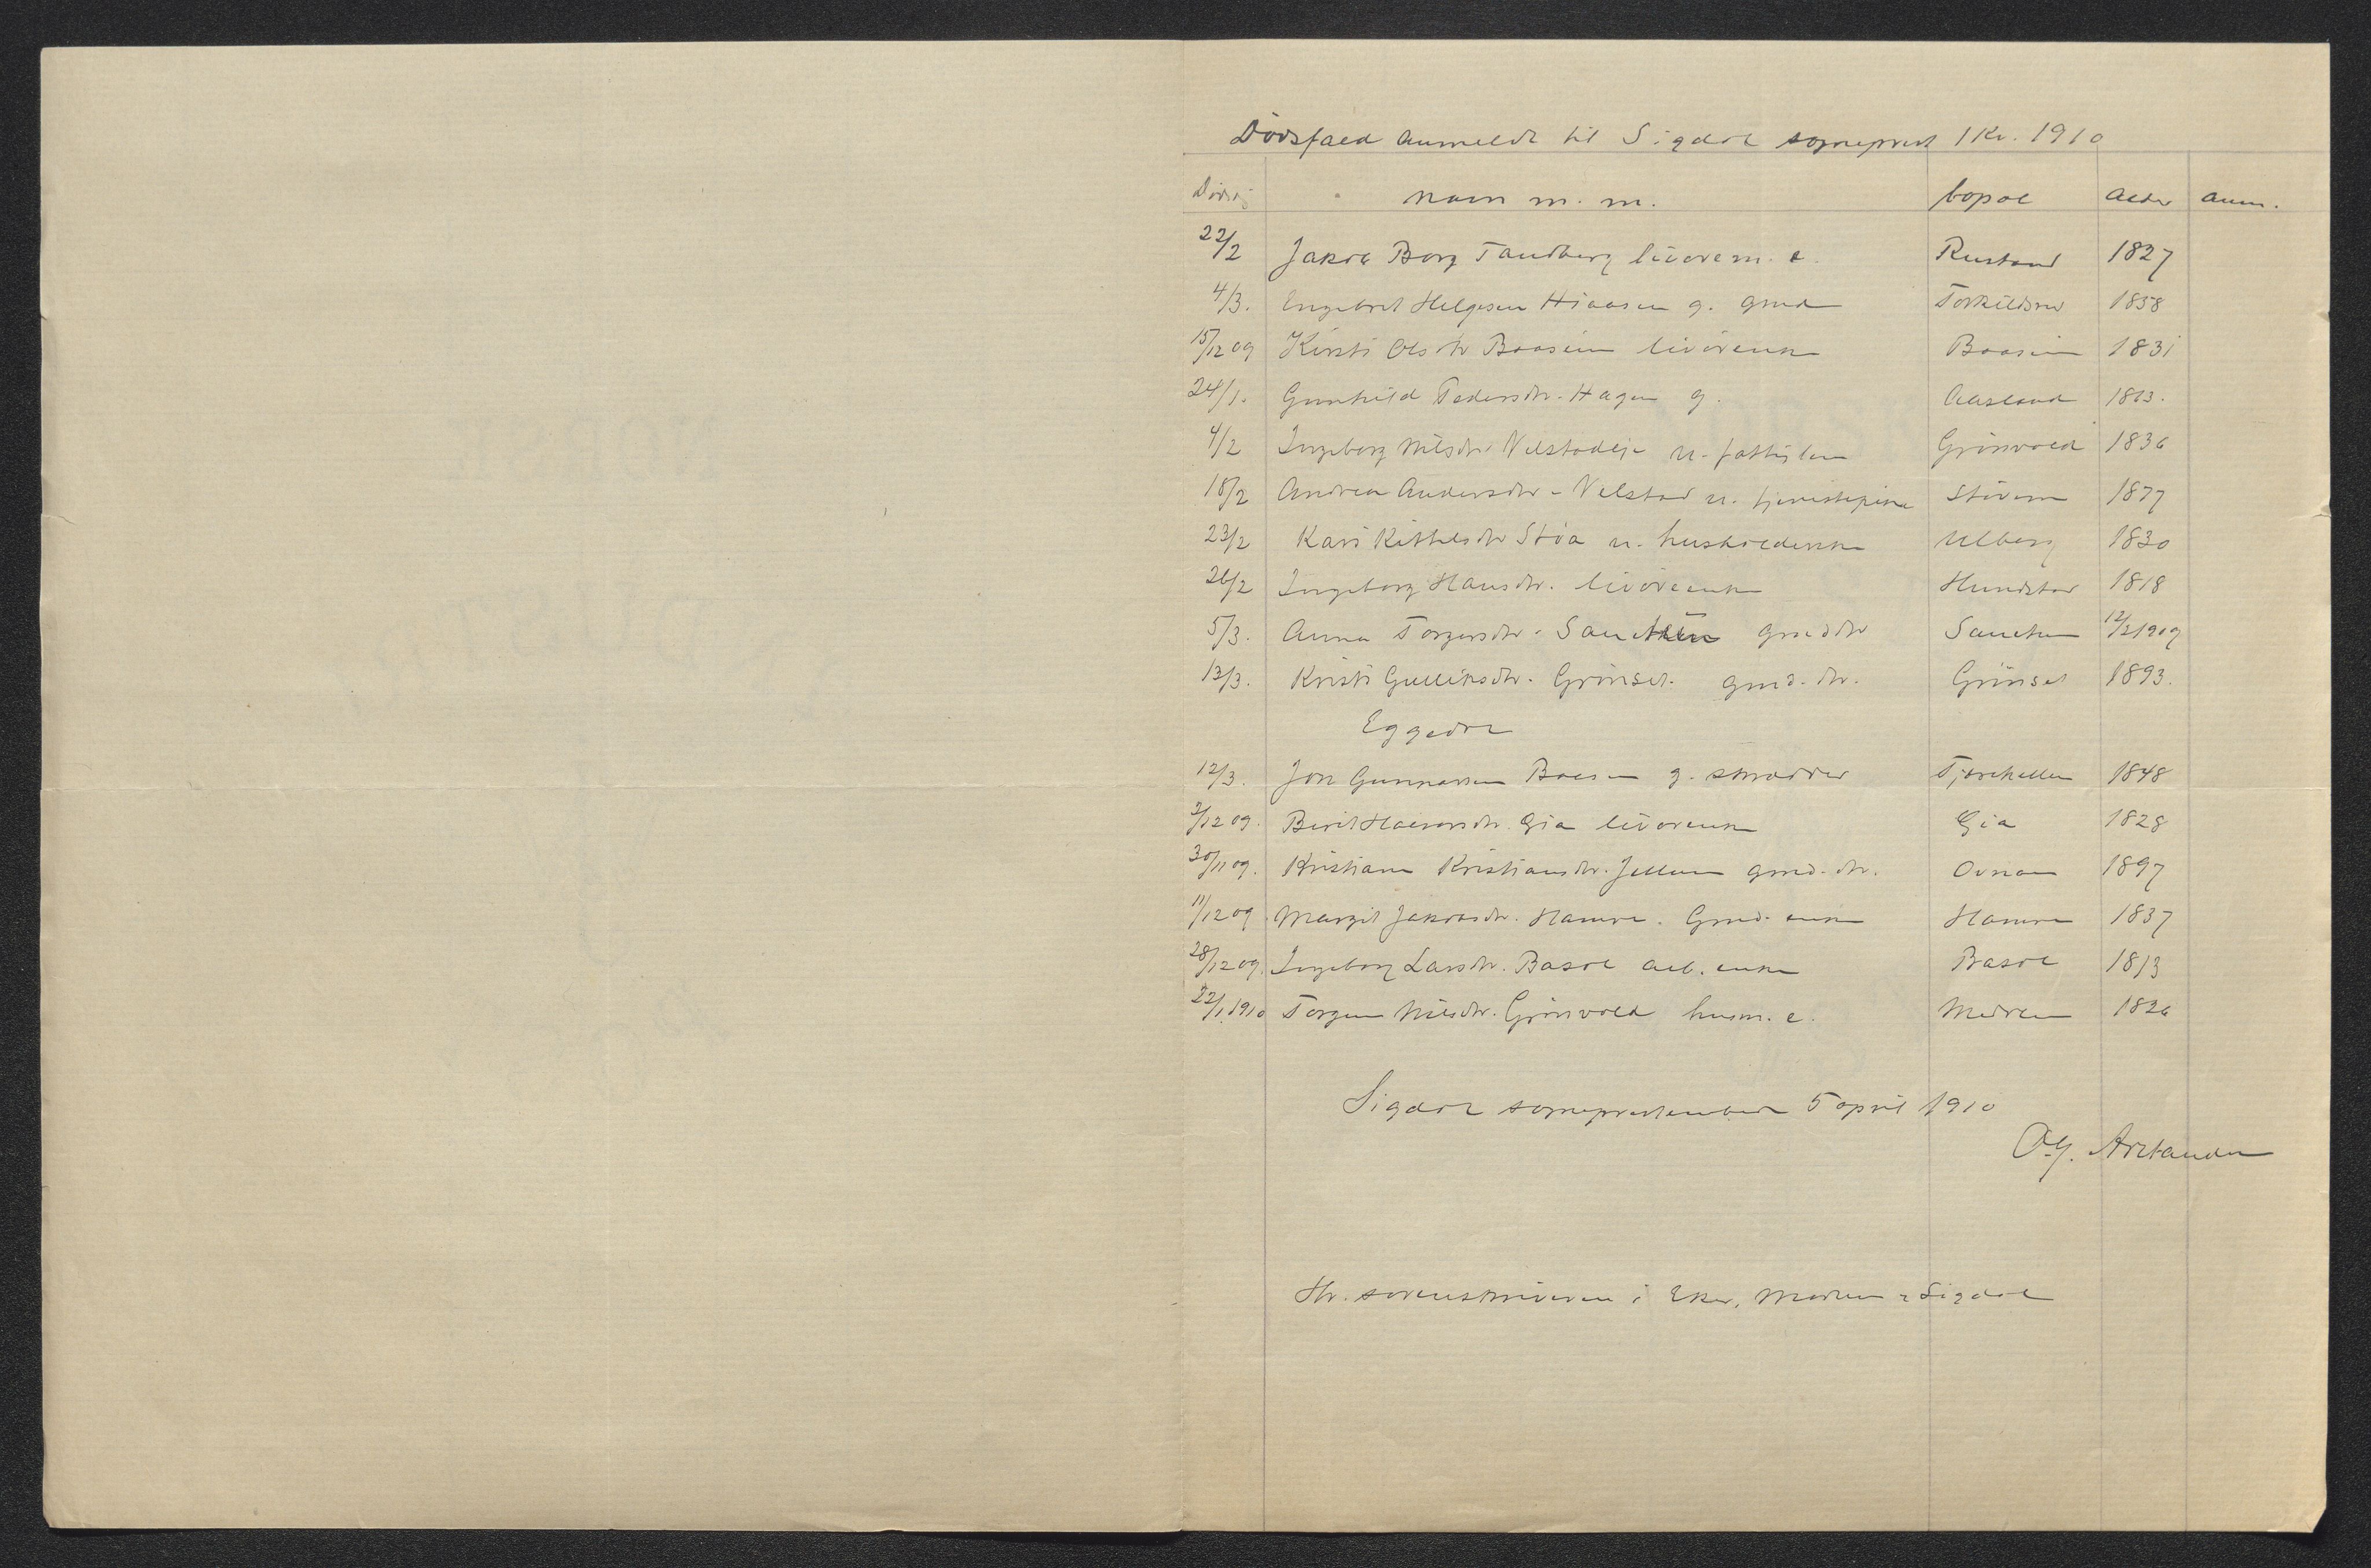 Dödsfald anmeldt til Sigdal sogneprest 1 Kv. 1910
Dödsdg navn m. m. bopæl alder anm.
22/2 Jakob Borg Tandberg livörem. e. Rustand 1827
4/3. Engebret Helgesen Hiaasen g. gmd Torkildsrud 1858
15/12 09 Kirsti Olsdtr Baasen livörenke Baasen 1831
24/1. Gunhild Pedersdtr. Hagen g. Aasland 1863.
4/2 Ingeborg Nilsdtr. Velstadeje u. fattiglem Grönvold 1836
18/2 Andrea Andersdtr. Velstad u. tjenestepike Stöveren 1877
23/2 Kari Kittelsdtr Stöa u. husholderske Ulberg 1830
26/2 Ingeborg Hansdtr. livörenke Hundstad 1818
5/3. Anna Torgersdtr. Sandum gmd dtr 12/2 1909
13/3. Kristi Gulliksdtr. Grönset. gmd. dtr. Grönset 1893.
Eggedal
12/3. Jon Gunnarsen g. skrædder 1848
3/12 09. Berit Halvorsdtr. Gia livörenke Gia 1828
30/11 09. Kristiane Kristiansdtr. Jellum gmd. dtr. 1897
11/12 09. Margit Jakobsdtr. Hamre. Gmd. enke Hamre 1837
28/12 09. Ingeborg Larsdtr. Basol arb. enke Basol 1813
22/1. 1910 Torgun Nilsdtr. Grönvold husm. e. Medren 1826
Sigdal sogneprestembede 5 april 1910
O.J. Arctander
Hr. sorenskriveren i Eker, Modum & Sigdal